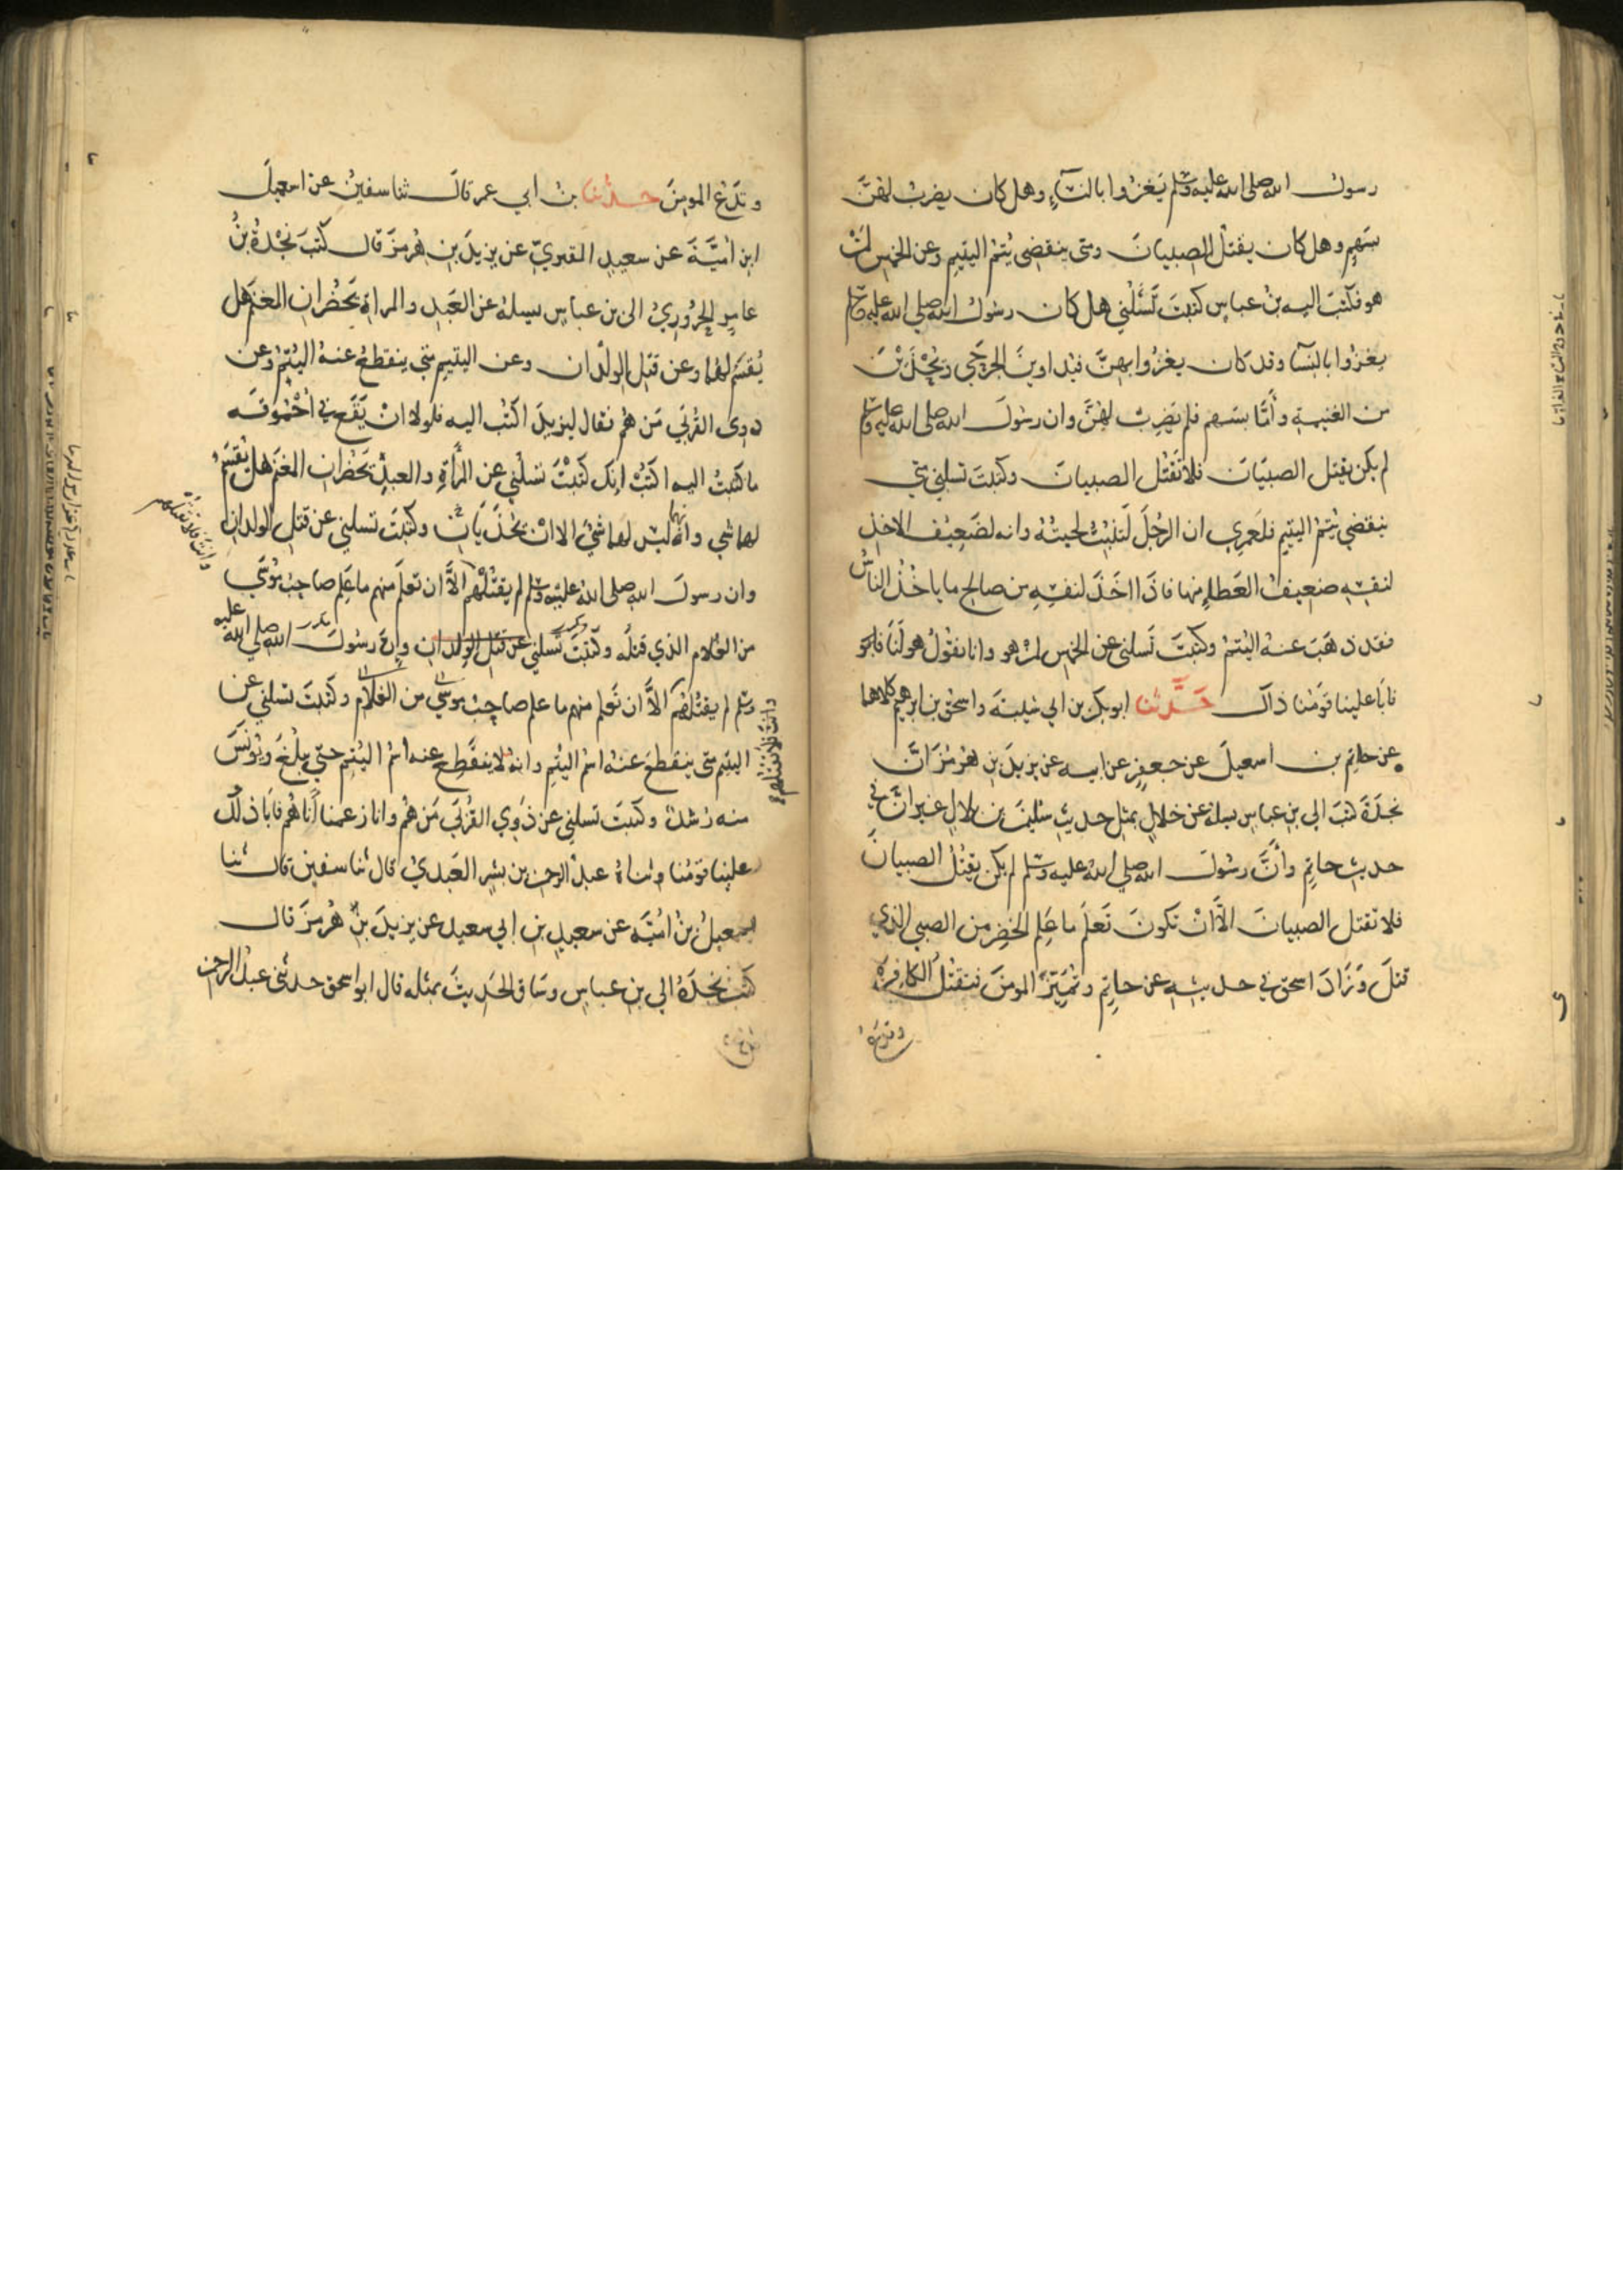 رسول الله صلى الله عليه وسلم يغزوا بالنسآء وهل كان يضرب لهن
بسهم وهل كان يقتل الصبيان ومتى ينقضي يتم اليتيم وعن الخمس لمن
هو فكتب اليه بن عباس كتبت تسئلني هل كان رسول الله صلى الله عليه وسلم
يغزوا بالنسآ وقد كان يغزوا بهن فيداوين الجرحى ويحذين
من الغنيمة وأما بسهم فلم يضرب لهن وان رسول الله صلى الله عليه وسلم
لم يكن يقتل الصبيان فلا تقتل الصبيان وكتبت تسلني متى
ينقضي يتم اليتيم فلعمري ان الرجل لتنبت لحيته وانه لضعيف الاخذ
لنفسه ضعيف العطاء منها فاذا اخذ لنفسه من صالح ما ياخذ الناس
فقد ذهب عنه اليتم وكتبت تسلني عن الخمس لمن هو وانا نقول هو لنا
فابا علينا قومنا ذاك حدثنا ابو بكر بن ابي شيبة واسحق بن ابرهيم كلاهما
عن حاتم بن اسمعيل عن جعفر عن ابيه عن يزيد بن هرمز ان
نجدة كتب الى بن عباس يسله عن خلال بمثل حديث سليمن بن بلال غير ان في
حديث حاتم وأن رسول الله صلى الله عليه وسلم لم يكن يقتل الصبيان
فلا تقتل الصبيان الا ان تكون تعلم ما علم الخضر من الصبي الذي
قتل وزاد اسحق في حديثه عن حاتم وتميز المومن فتقتل الكافر
وتدع
وتدع المومن حدثنا بن أبي عمر قال ثنا سفين عن اسمعيل
ابن امية عن سعيد المقبري عن يزيد بن هرمز قال كتب نجدة بن
عامر الحروري الى بن عباس يسله عن العبد والمراة يحضران المغنم هل
يقسم لهما وعن قتل الولدان وعن اليتيم متى ينقطع عنه اليتم وعن
ذوى القربى من هم فقال ليزيد اكتب اليه فلولا ان يقع في احموقة
ما كتبت اليه اكتب انك كتبت تسلني عن المرأة والعبد يحضران المغنم هل يقسم
لهما شي وانه ليس لهما شي الا ان يحذيا وكتبت تسلني عن قتل الولدان
وان رسول الله صلى الله عليه وسلم لم يقتلهم الا ان تعلم منهم ما علم صاحب موسى
من الغلام الذي قتله وكتبت تسلني عن قتل الولدان وان رسول الله صلى الله عليه
وسلم لم يقتلهم الا ان تعلم منهم ما علم صاحب موسى من الغلام وكتبت تسلني عن
اليتيم متى ينقطع عنه اسم اليتم وانه لا ينقطع عنه اسم اليتم حتى يبلغ ويونس
منه رشد وكتبت تسلني عن ذوي القربى من هم وانا زعمنا أنا هم فابا ذلك
علينا قومنا وثناه عبد الرحمن بن بشر العبدي قال ثنا سفين قال ثنا
اسمعيل بن امية عن سعيد بن ابي سعيد عن يزيد بن هرمز قال
كتب نجدة الى بن عباس وساق الحديث بمثله قال ابو اسحق حدثني عبد الرحمن
وانت فلا تقتلهم
وانت فلا تقتلهم